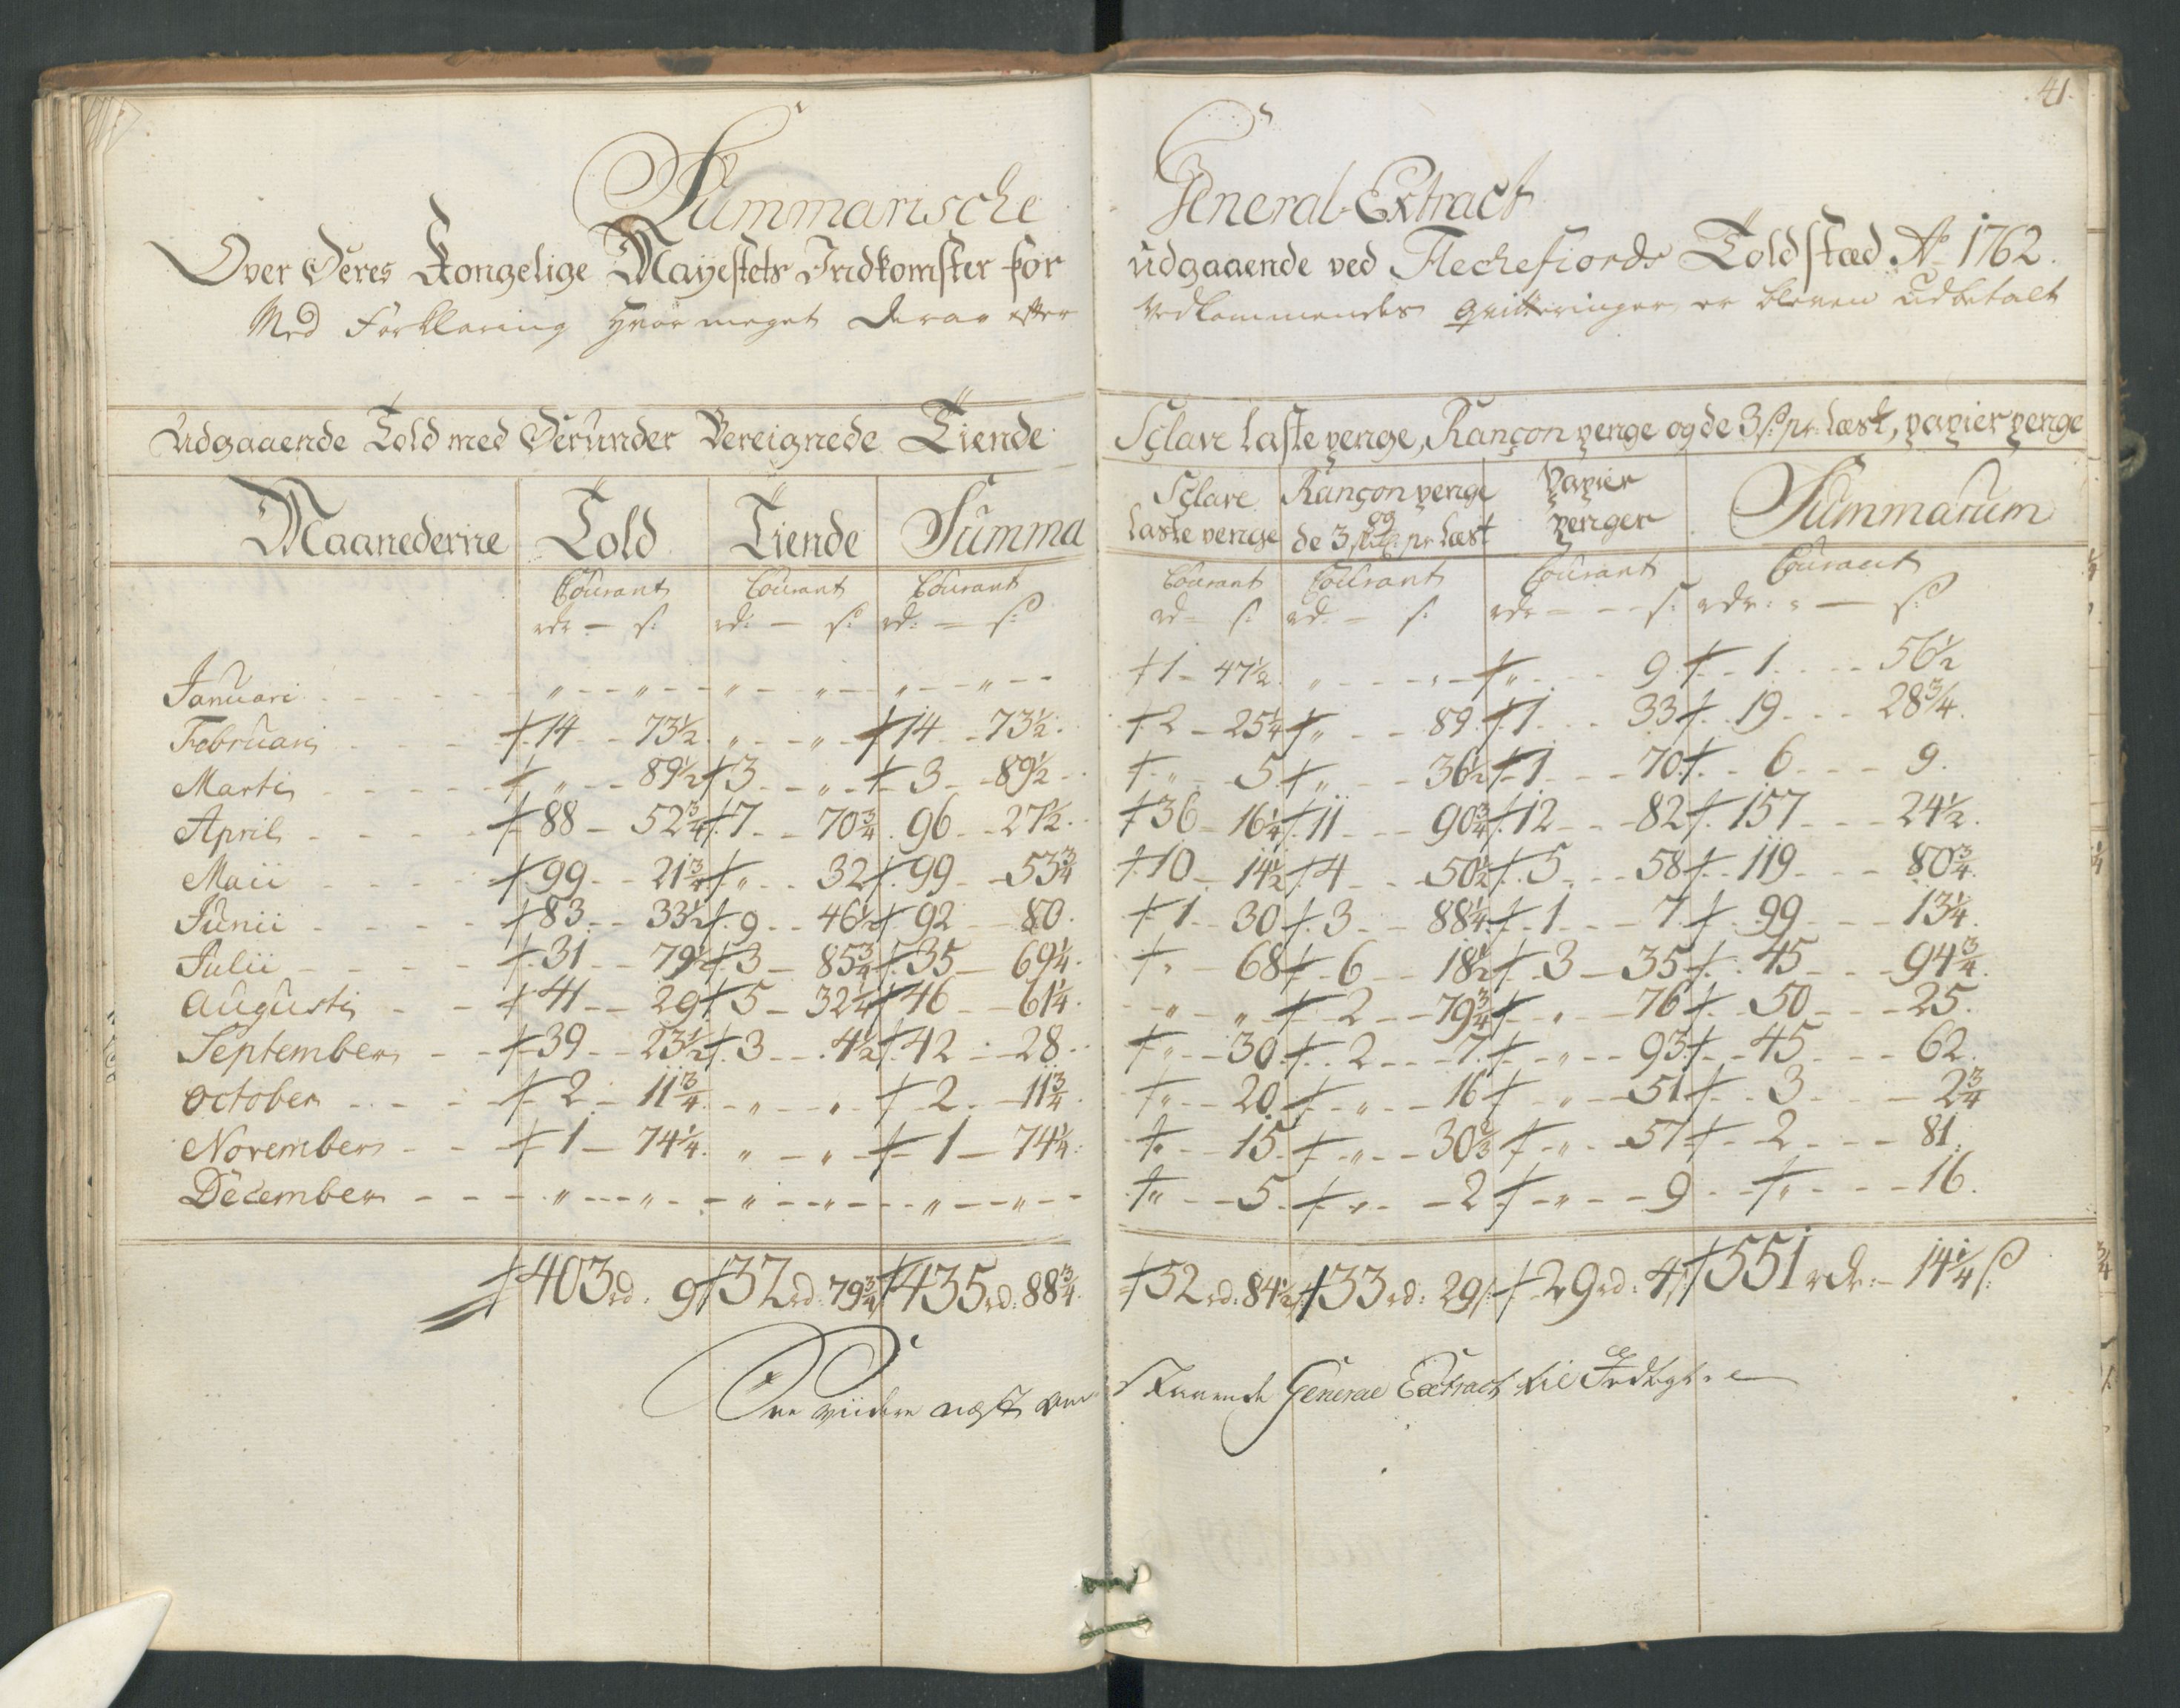 41.
Summarische General-Extract
Over Deres Kongelige Mayestets Indkomster for udgaaende ved Flechefiords Toldstæd A° 1762.
Med Forklaring hvor meget deraf efter Vedkommendes qvitteringer er bleven udbetalt
Udgaaende Told med Derunder Bereignede Tiende
Maanederne Told Tiende Summa
Courant Courant Courant
rdr — s: rd: — s: rd: — s:
Januari „ „ „ „ „ „
Februarij 14 73½ „ „ 14 73½
Martij „ 89½ 3 „ 3 89½
April 88 52¾ 7 70¾ 96 27½
Maii 99 21¾ „ 32 99 53¾
Junii 83 33½ 9 46½ 92 80
Julii 31 79½ 3 85¾ 35 69¼
Augustij 41 29 5 32¼ 46 61¼
September 39 23½ 3 4½ 42 28
October 2 11¾ „ „ 2 11¾
November 1 74¼ „ „ 1 74¼
December „ „ „ „ „ „
403 rd. 9 32 rd: 79¾ 435 rd: 88¾
Sclave laste penge, Rançon penge og de 3 s: pr: læst, papier penge
Sclave Rançon penge Papier Summarum
laste penge og de 3 s: pr læst penger
Courant Courant Courant Courant
rd s: rd. s: rdr s: rdr: s:
1 47½ „ „ „ 9 1 56½
2 25¼ „ 89 1 33 19 28¾
„ 5 „ 36½ 1 70 6 9
36 16¼ 11 90¾ 12 82 157 24½
10 14½ 4 50½ 5 58 119 80¾
1 30 3 88¼ 1 7 99 13¼
„ 68 6 18½ 3 35 45 94¾
„ „ 2 79¾ „ 76 50 25
„ 30 2 7 „ 93 45 62
„ 20 „ 16 „ 51 3 2¾
„ 15 „ 30½ „ 57 2 81
„ 5 „ 2 „ 9 „ 16
52 rd: 84½ 33 rd: 29 s: 29 rd: 4 s: 551 rdr: 14¼ s:
næst General Extract